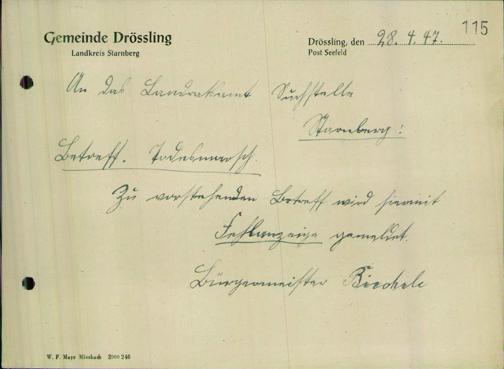 115
Gemeinde Drössling
Landkreis Starnberg
Drössling, den 28. 4. 47.
Post Seefeld
An das Landratsamt Suchstelle
Starnberg:
Betreff. Todesmarsch.
Zu vorstehenden Betreff wird hiermit
Fehlanzeige gemeldet.
Bürgermeister
W. F. Mayr Miesbach 2000 246